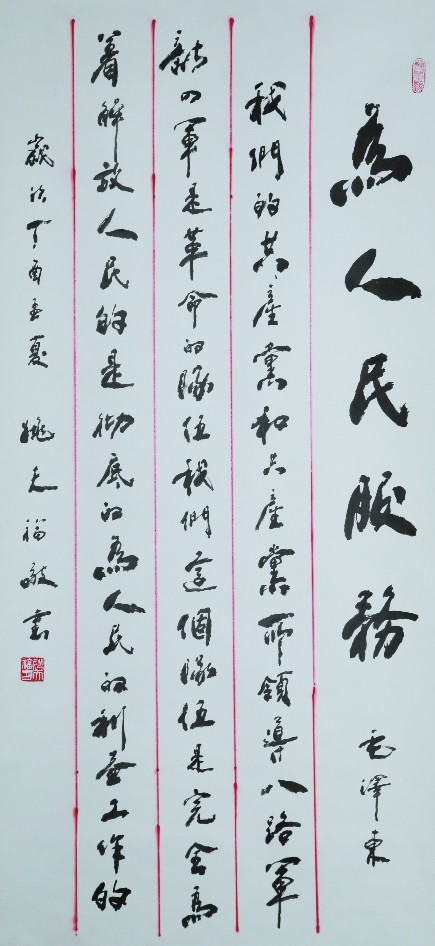 為人民服務 毛澤東
我們的共產黨和共產黨所領導八路軍
新四軍是革命的隊伍我們這個隊伍是完全為
着解放人民的是徹底的為人民的利益工作的
歲次丁酉孟夏 姚 福 書